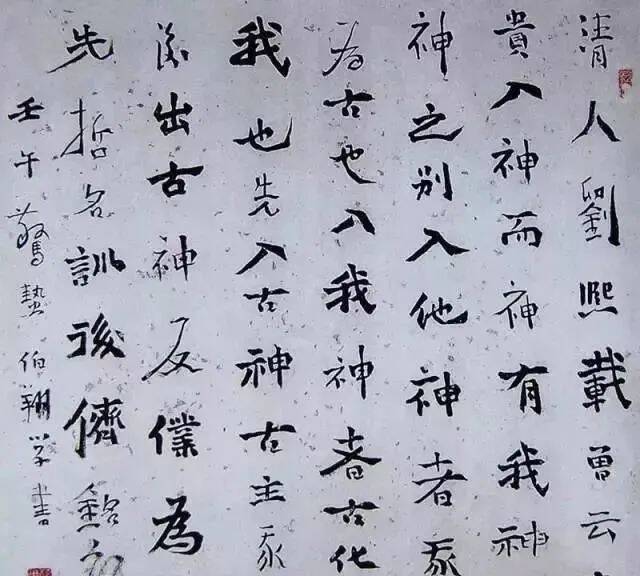 清人劉熙載曾云
貴入神而神有我神
神之别入他神者我
為古也入我神者古化
我也先入古神古主我
後出古神反僕為
先哲名訓後儕銘
壬午驚蟄伯翔学書